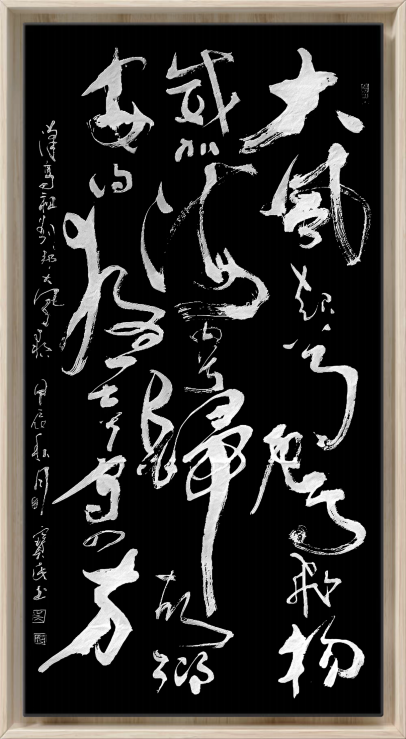 大風起兮雲飛揚
威加海內兮歸故鄉
安得猛士兮守四方
漢高祖劉邦大風歌 甲辰秋月 寶民書